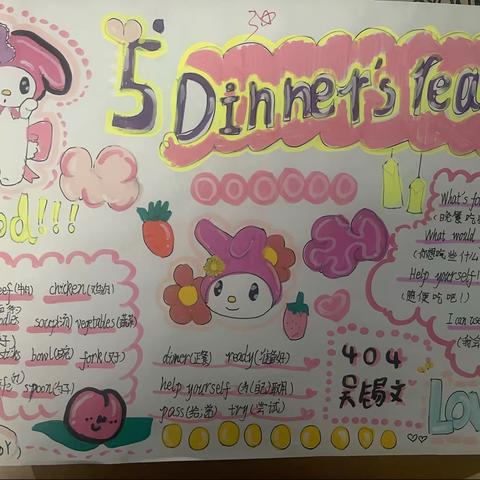 5 Dinner's rea
od!!!
eef(牛肉) chicken(鸡肉)
soup(汤) vegetables(蔬菜)
bowl(碗) fork(叉子)
spoon(勺子)
dinner(正餐) ready(准备好)
help yourself (为(自己)取用)
pass(给;递) try(尝试)
What's fo
(晚餐吃
What would
(你想吃些什么
Help yourself!
(随便吃吧!)
I can use
(我会
404
吴锡文
LOV